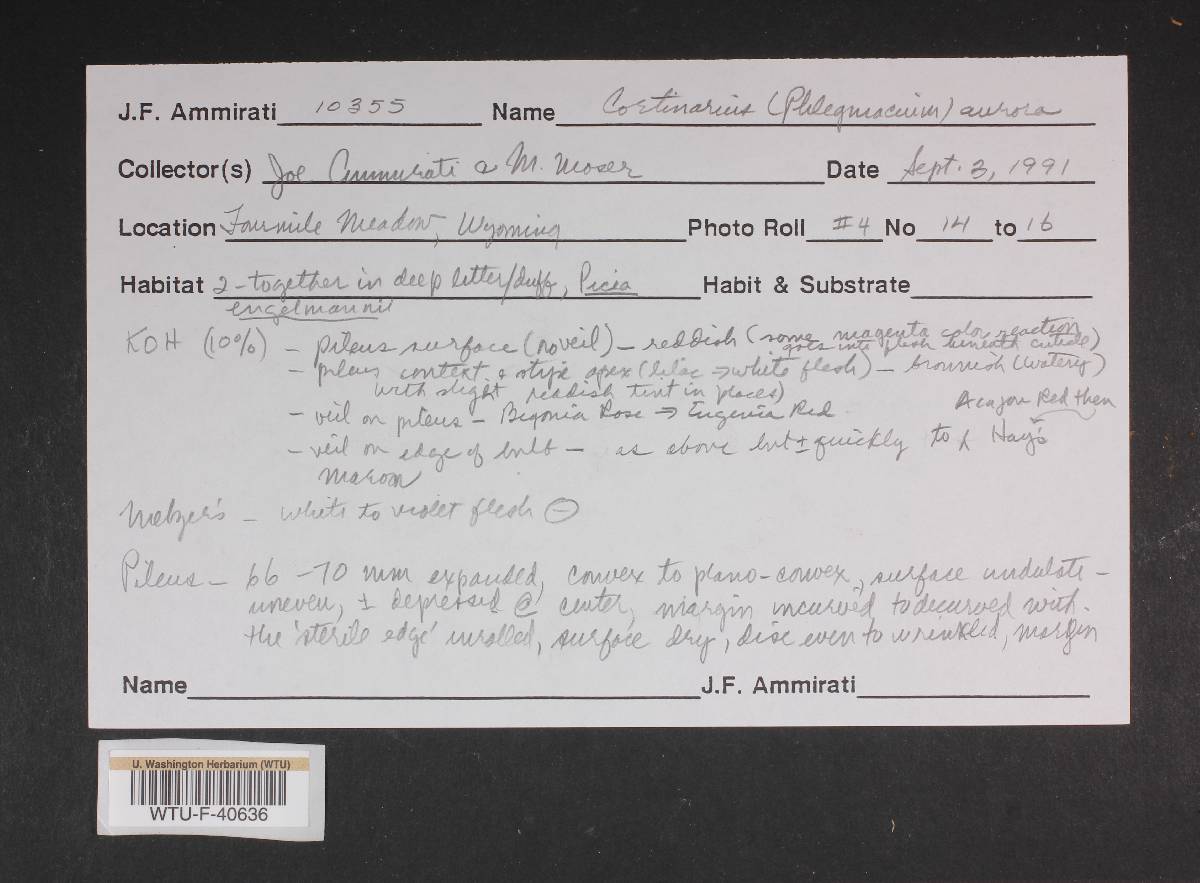 J.F. Ammirati 10355 Name Cortinarius (Phlegmacium) aurora
Collector(s) Joe Ammirati & M. Moser Date Sept. 3, 1991
Location Fourmile Meadow, Wyoming Photo Roll #4 No 14 to 16
Habitat 2-together in deep litter/duff, Picia Habit & Substrate
engelmannii
KOH (10%) - pileus surface (no veil) - reddish (some magenta color reaction
goes into flesh beneath cuticle)
- pileus context & stipe apex (lilac → white flesh) - brownish (watery)
with slight reddish tint in places)
- veil on pileus - Begonia Rose → Eugenia Red
Acajou Red then
- veil on edge of bulb - as above but ± quickly to Hay's
Maroon
Melzer's - white to violet flesh ⊖
Pileus - 66-70 mm expanded, convex to plano-convex, surface undulate-
uneven, ± depressed @ center, margin incurved to decurved with
the 'sterile edge' inrolled, surface dry, disc even to wrinkled, margin
Name J.F. Ammirati
U. Washington Herbarium (WTU)
WTU-F-40636